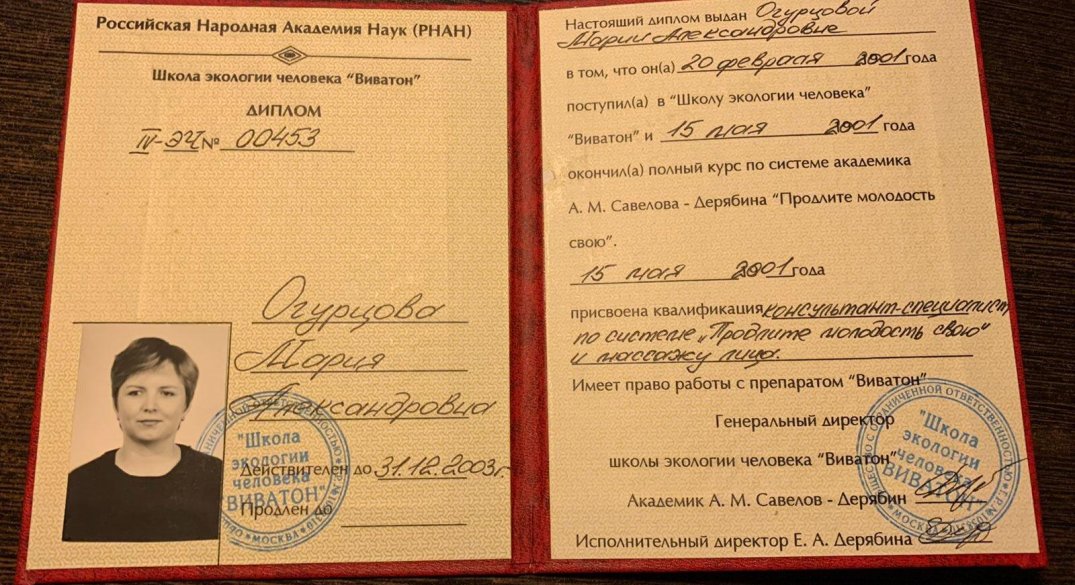 Российская Народная Академия Наук (РНАН)
Школа экологии человека "Виватон"
ДИПЛОМ
IV-ЭЧ № 00453
Огурцова
Мария
Александровна
"Школа
экологии
человека
"ВИВАТОН"
МОСКВА
Действителен до 31.12.2003г.
Продлен до
Настоящий диплом выдан Огурцовой
Марии Александровне
в том, что он(а) 20 февраля 2001 года
поступил(а) в "Школу экологии человека"
"Виватон" и 15 мая 2001 года
окончил(а) полный курс по системе академика
А. М. Савелова - Дерябина "Продлите молодость
свою".
15 мая 2001 года
присвоена квалификация консультант-специалист
по системе „Продлите молодость свою"
и массажу лица.
Имеет право работы с препаратом "Виватон"
Генеральный директор
школы экологии человека "Виватон"
Академик А. М. Савелов - Дерябин
Исполнительный директор Е. А. Дерябина
С ОГРАНИЧЕННОЙ ОТВЕТСТВЕННОСТЬЮ
"Школа
экологии
человека
ВИВАТОН"
МОСКВА